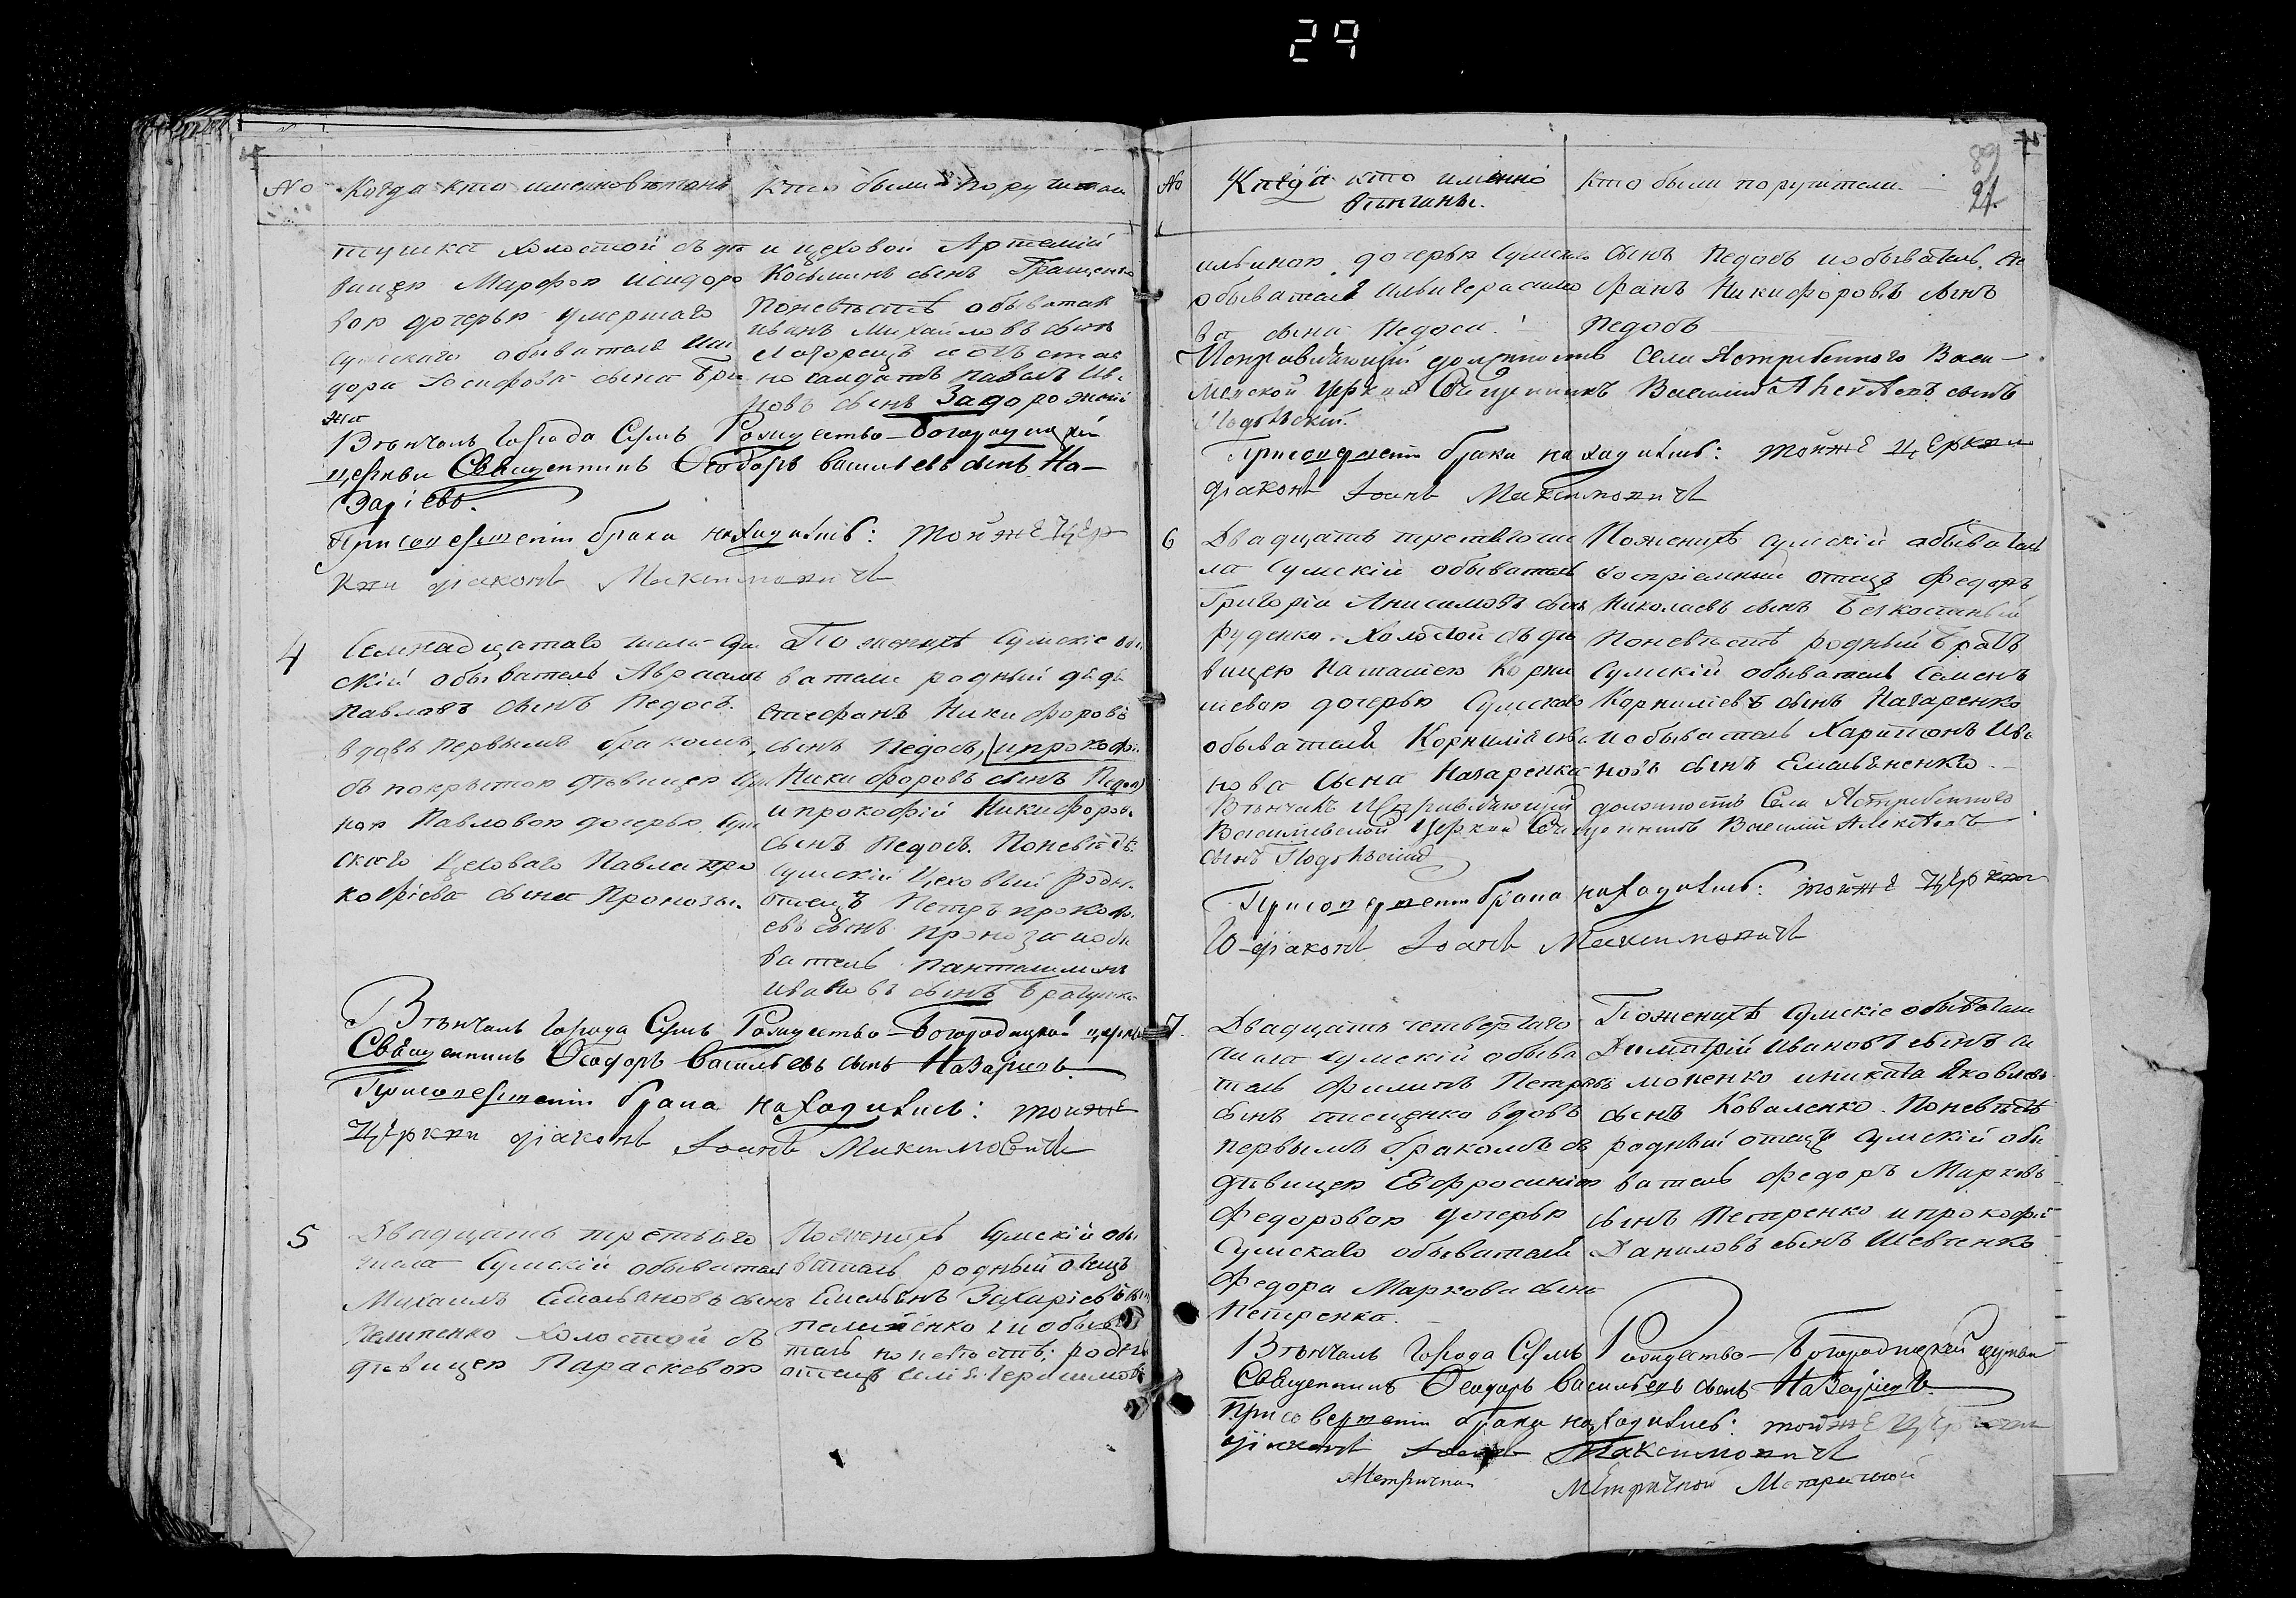 29
89
21.
No Когда кто именно вѣнчанъ
Кто были поручители
птушка холостой съ дѣ
вицею Марфою Исидоро
вою дочерью умершаго
Сумскаго обывателя Иси
дора Іосифова сына Бри
жа
и цеховой Артемій
Косьминъ сынъ Гращенко
Поневѣстѣ обыватель
Иванъ Михайловъ сынъ
но солдатъ Павелъ Ива
новъ сынъ Задорожный
Вѣнчалъ города Сумъ Рождество-Богородицкой
церкви Священникъ Ѳеодоръ Васильевъ сынъ На-
заріевъ.
При совершеніи брака находились: тойже цер
кви діаконъ Максимовичъ
4
Семнадцатаго числа Сум
скій обыватель Авраамъ
Павловъ сынъ Педосъ.
вдовъ первымъ бракомъ,
съ покрыткою дѣвицею
ною Павловою дочерью Сум
скаго Цеховаго Павла Про
кофіева сына Пронозы.
По женихѣ Сумскіе обы
ватели родный дядя
Стефанъ Никифоровъ
сынъ Педосъ, и Прокофій
Никифоровъ сынъ Педосъ
и Прокофій Никифоров.
сынъ Педосъ. Поневѣстѣ
Сумскій Цеховый родн.
отецъ Петръ Прокоф.
евъ сынъ Проноза и обы
ватель Пантелимонъ
Ивановъ сынъ Братушка
Вѣнчалъ города Сумъ Рождество-Богородицкой церкви
Священникъ Ѳеодоръ Васильевъ сынъ Назаріевъ.
При совершеніи брака находились: тойже
церкви діаконъ Іоанъ Максимовичъ
5
Двадцать третьяго
числа Сумскій обыватель
Михаилъ Емельяновъ сынъ
Пелипенко холостой съ
дѣвицею Параскевою
Поженихѣ Сумскій обы
ватель родный отецъ
Емельянъ Захаріевъ сын
Пелипенко и обыва
тель поневѣстѣ: родный
отецъ Илія Герасимовъ
No Когда кто именно
вѣнчаны.
Кто были поручители.
ильиною дочерью Сумскаго
обывателя Ильи Герасимо
ва сына Педоса.
сынъ Педосъ и обыватель Сте
фанъ Никифоровъ сынъ
Педосъ
Исправляющій должность Села Ястребеннаго Васи-
левской церкви Священникъ Василій Алексѣевъ сынъ
Подольскій.
При совершеніи брака находились: тойже церкви
діаконъ Іоанъ Максимовичъ
6
Двадцать третьяго чис
ла Сумскій обыватель
Григорій Анисимовъ сынъ
Руденко. Холостой съ дѣ
вицею Наталіею Корни
ліевою дочерью Сумскаго
обывателя Корнилія Ива
нова сына Назаренка
Поженихѣ Сумскій обыватель
воспріемный отецъ Федоръ
Николаевъ сынъ Безкостный
Поневѣстѣ родный братъ
Сумскій обыватель Семенъ
Корниліевъ сынъ Назаренко
и обыватель Харитонъ Ива
новъ сынъ Емельяненко.
Вѣнчалъ Исправляющій должность Села Ястребеннаго
Василевской Церкви Священникъ Василій Алексѣевъ
сынъ Подольскій
При совершеніи брака находились: тойже церкви
діаконъ Іоанъ Максимовичъ
7.
Двадцать четвертаго
числа Сумскій обыва
тель Филипъ Петровъ
сынъ вдовъ
первымъ бракомъ съ
дѣвицею Евфросиніею
Федоровою дочерью
Сумскаго обывателя
Федора Маркова сына
Петренка.
Поженихѣ Сумскіе обыватели
Димитрій Ивановъ сынъ Си
моненко и Никита Яковлевъ
сынъ Коваленко. Поневѣстѣ
родный отецъ Сумскій обы
ватель Федоръ Марковъ
сынъ Петренко и Прокофій
Даниловъ сынъ Шевченко
Вѣнчалъ города Сумъ Рождество-Богородицкой церкви
Священникъ Ѳеодоръ Васильевъ сынъ Назаріевъ.
При совершеніи брака находились: тойже церкви
діаконъ Іоанъ Максимовичъ
Метричной Метричной Метричной